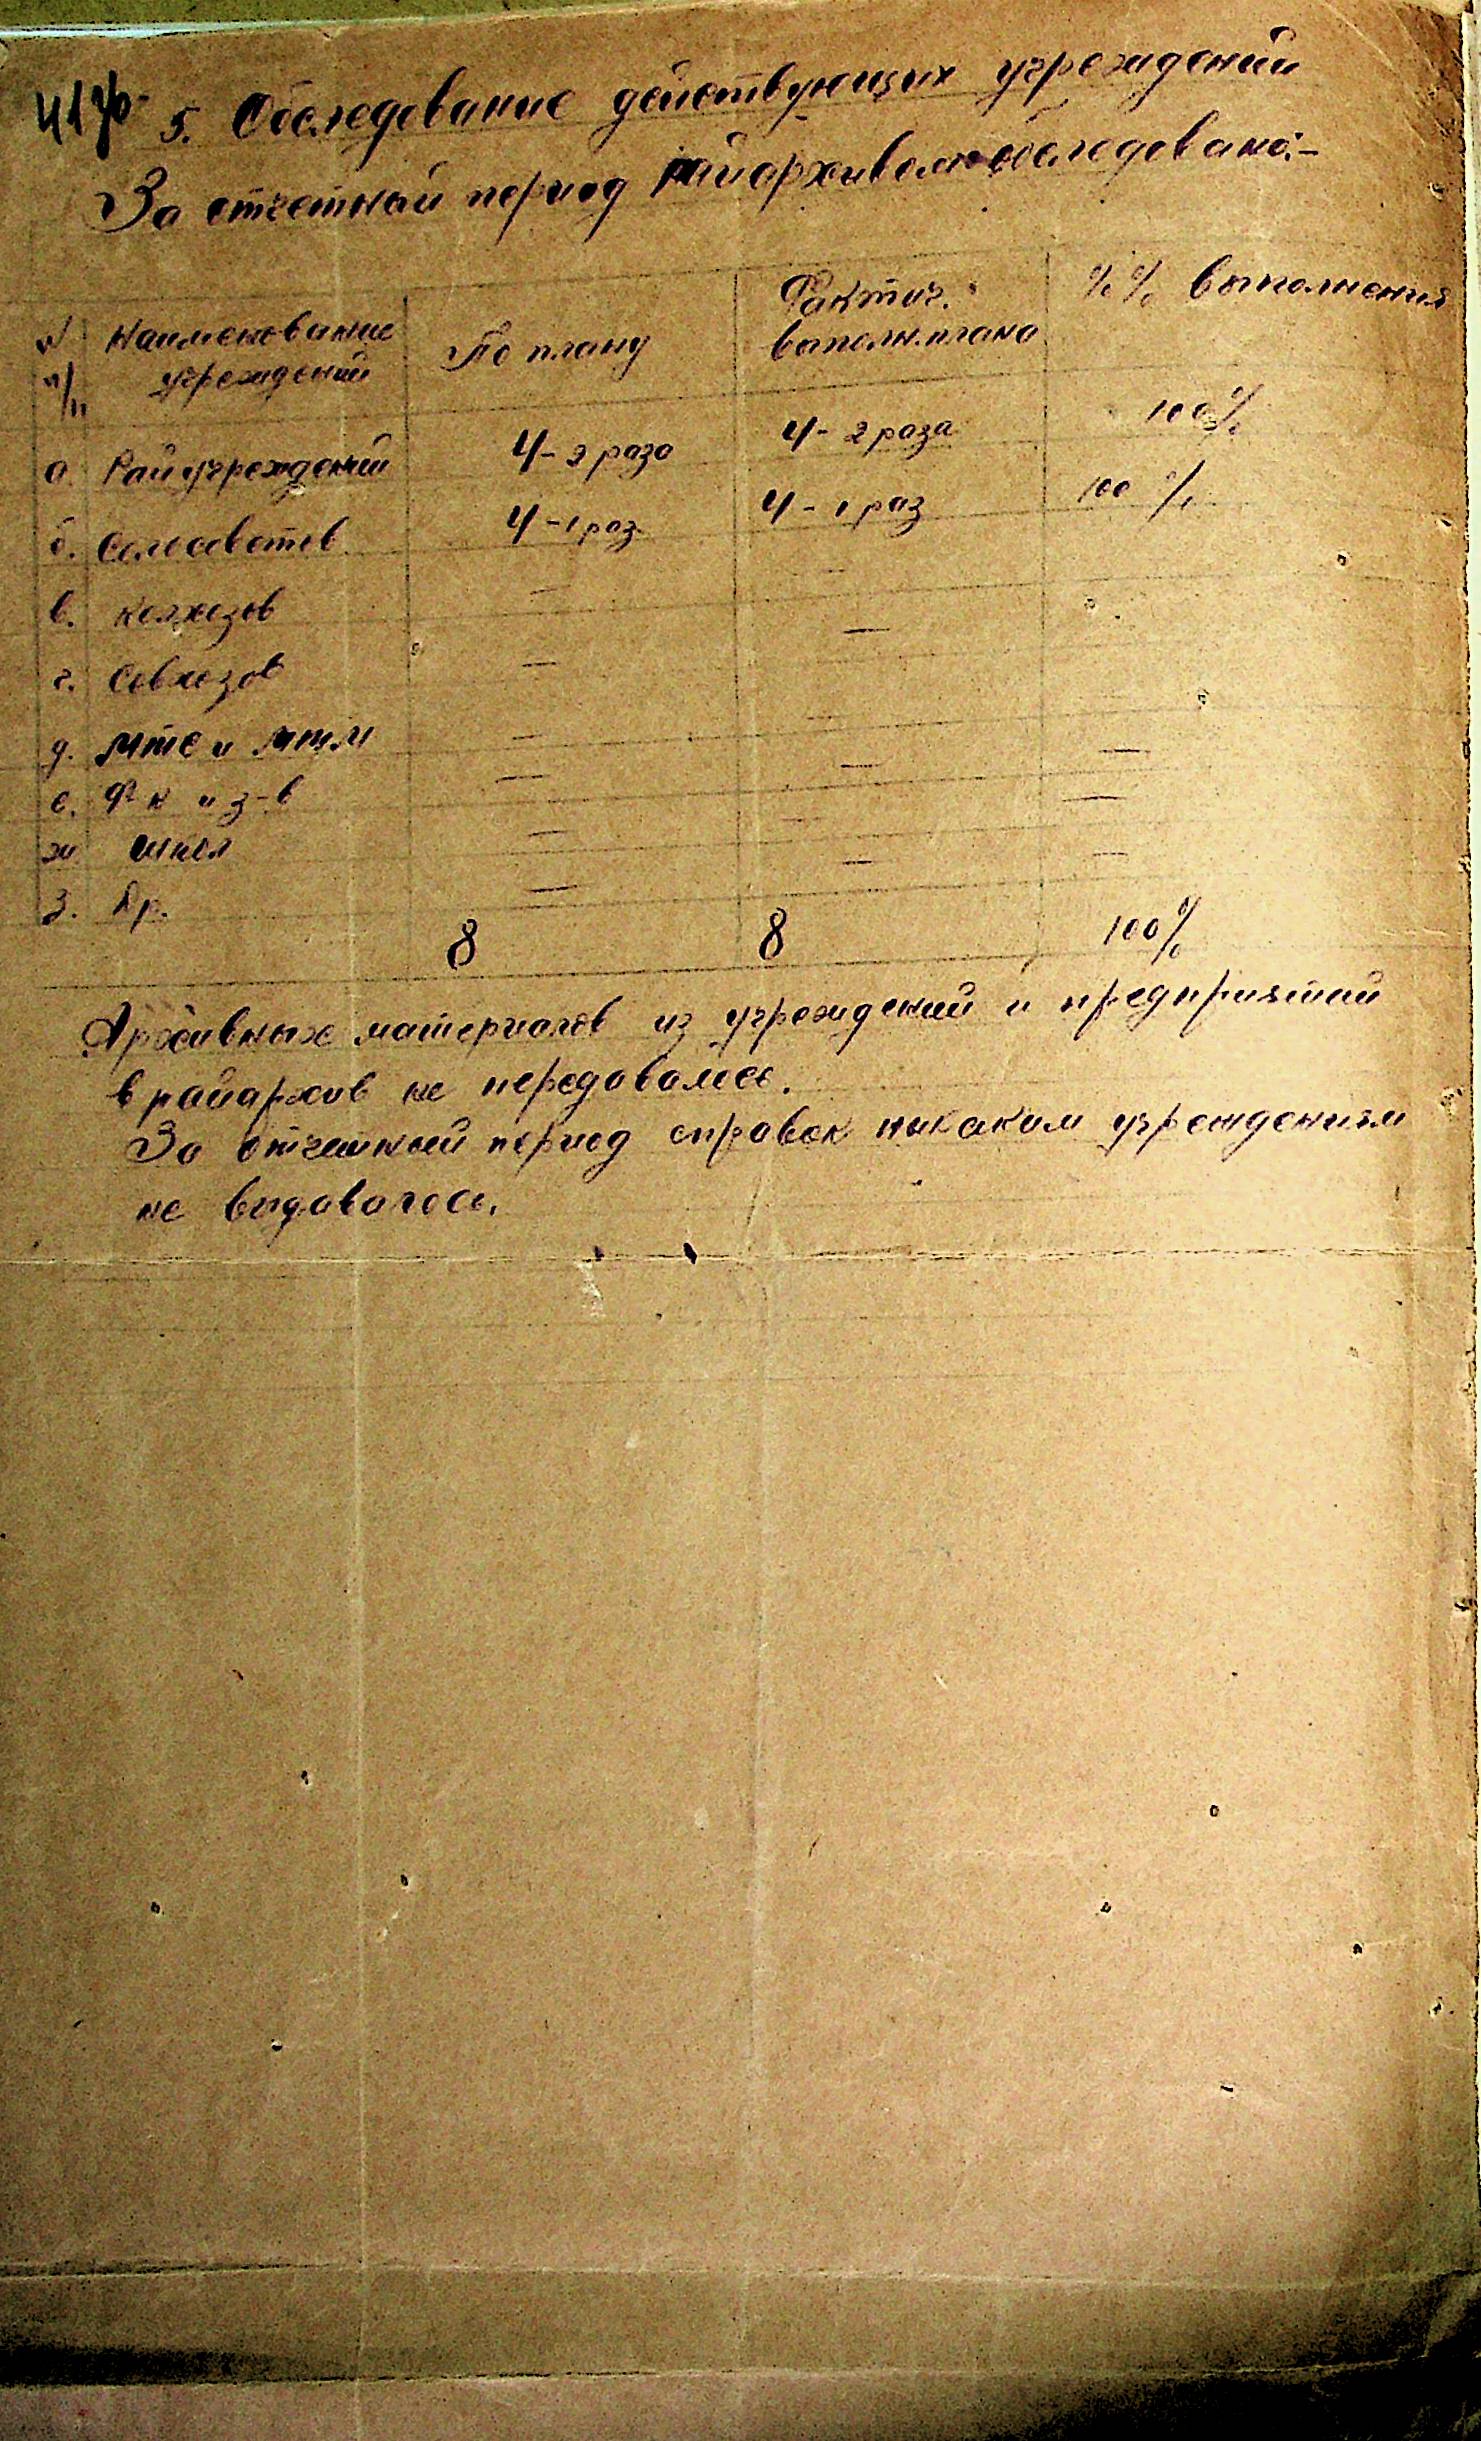 5. Обследование действующих учреждений
За отчетный период райархивом обследовано:-
№ п/п Наименование учреждений По плану Фактич. выполн. плана %% выполнения
а Райучреждений 4-2 раза 4-2 раза 100%
б. Сельсоветов 4-1 раз. 4-1 раз 100%
в. Колхозов — —
г. Совхозов — —
д. МТС и МТМ — — —
е. Ф-к и з-в — — —
ж школ — — —
з. Др. —
8 8 100%
Архивных материалов из учреждений и предприятий
в райархив не передавалось.
За отчетный период справок никаким учреждениям
не выдавалось.